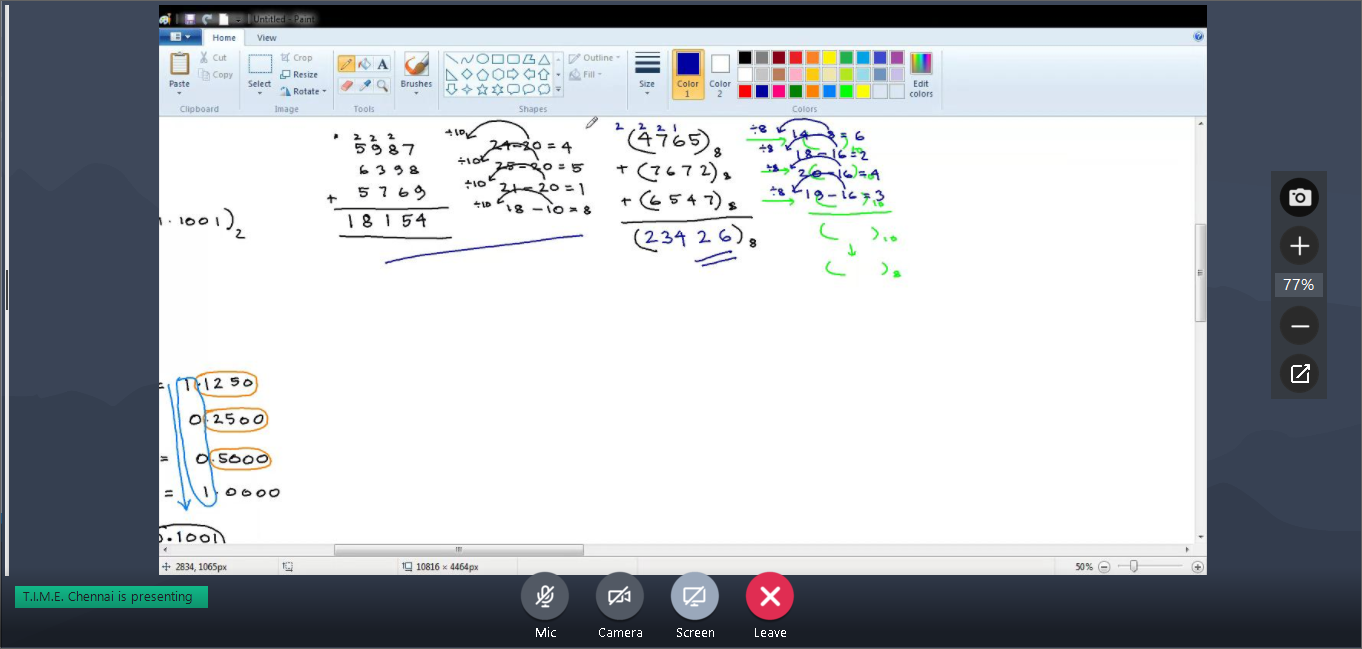 Untitled - Paint
Home View
Paste
Cut
Copy
Clipboard
Select
Crop
Resize
Rotate
Image
Tools
Brushes
Shapes
Outline
Fill
Size
Color 1
Color 2
Edit colors
Colors
1.1001)2
2 2 2
5987
6398
+ 5769
18154
÷10 24-20=4
÷10 25-20=5
÷10 21-20=1
÷10 18-10=8
2 2 2 1
(4765)8
+ (7672)8
+ (6547)8
(23426)8
÷8 14-8=6
÷8 18-16=2
÷8 20-16=4
÷8 19-16=3
( )10
( )8
= 1.1250
0.2500
= 0.5000
= 1.0000
0.1001
2834, 1065px
10816 × 4464px
50%
77%
T.I.M.E. Chennai is presenting
Mic
Camera
Screen
Leave